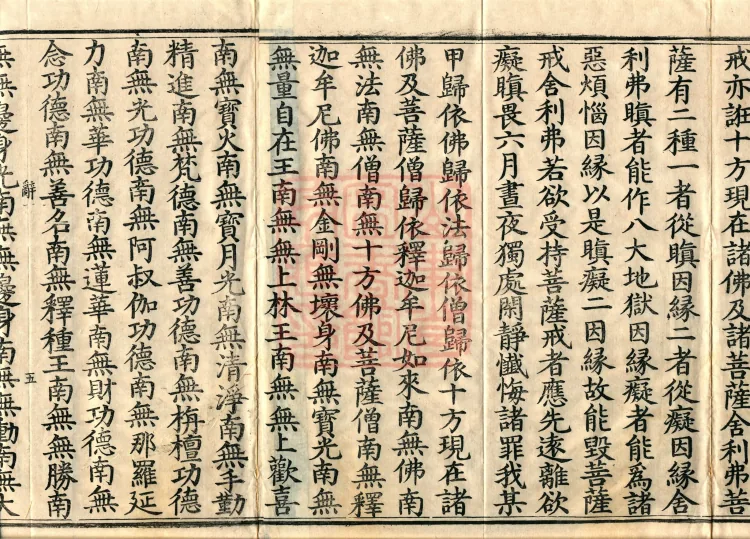 戒亦誑十方現在諸佛及諸菩薩舍利弗菩
薩有二種一者從瞋因縁二者從癡因縁舍
利弗瞋者能作八大地獄因縁癡者能爲諸
惡煩惱因縁以是瞋癡二因縁故能毀菩薩
戒舍利弗若欲受持菩薩戒者應先遠離欲
癡瞋畏六月晝夜獨處閑靜懺悔諸罪我某
甲歸依佛歸依法歸依僧歸依十方現在諸
佛及菩薩僧歸依釋迦牟尼如來南無佛南
無法南無僧南無十方佛及菩薩僧南無釋
迦牟尼佛南無金剛無壞身南無寶光南無
無量自在王南無無上林王南無無上歡喜
南無寶火南無寶月光南無清淨南無手勤
精進南無梵德南無善功德南無栴檀功德
南無光功德南無阿叔伽功德南無那羅延
力南無華功德南無蓮華南無財功德南無
念功德南無善名南無釋種王南無無勝南
辭 五
無無邊身光南無無邊身南無無動南無大